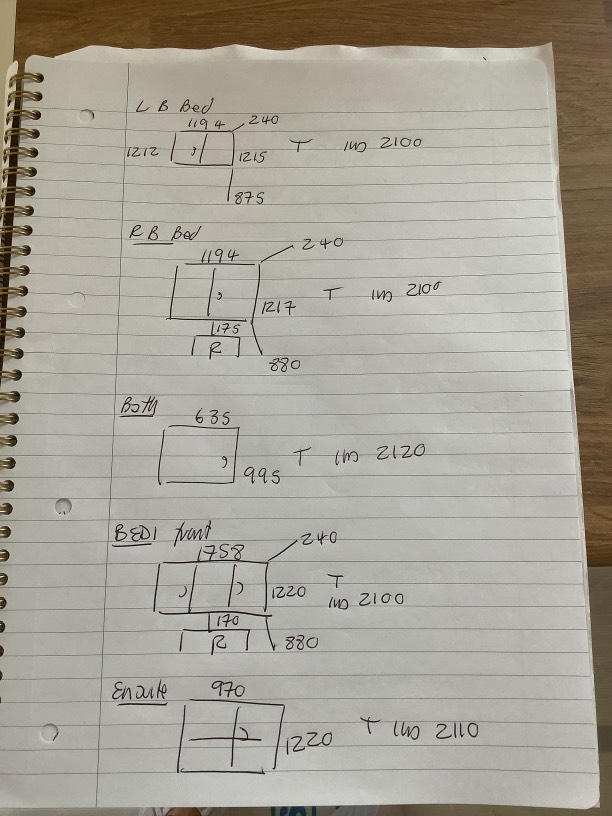 L B Bed
1194 240
1212 1215 T 2100
875
R B Bed
1194 240
1217 T 2100
175
R
880
Both
635
995 T 2120
BED1 front
1758 240
1220 T
2100
170
R 880
Ensuite 970
1220 T 2110